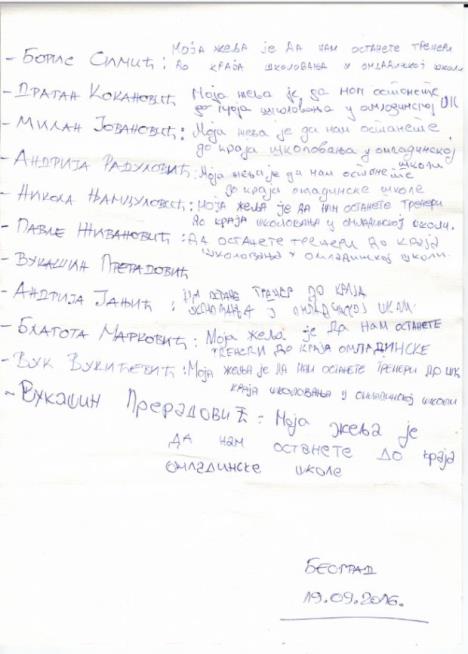 - Борис Симић : Моја жеља је да нам останете тренери
до краја школовања у омладинској школи
- Драган Кокановић Моја жеља је да нам останете
до краја школовања у омладинској
- Милан Јовановић : Моја жеља је да нам останете
до краја школовања у омладинској школи
- Андрија Радуловић : Моја жеља је да нам останете
до краја омладинске школе
- Никола : Моја жеља је да нам останете тренери
до краја школовања у омладинској школи.
- Павле Живановић : Да останете тренери до краја
школовања у омладинској школи.
- Вукашин
- Андрија Јањић : тренер до краја
у омладинској
- Благота Марковић : Моја жеља је да нам останете
тренери до краја омладинске
- Вук Вукићевић : Моја жеља је да нам останете тренери до
краја школовања у омладинској школи
- Вукашин Прерадовић : Моја жеља је
да нам останете до краја
омладинске школе
Београд
19.09.2016.